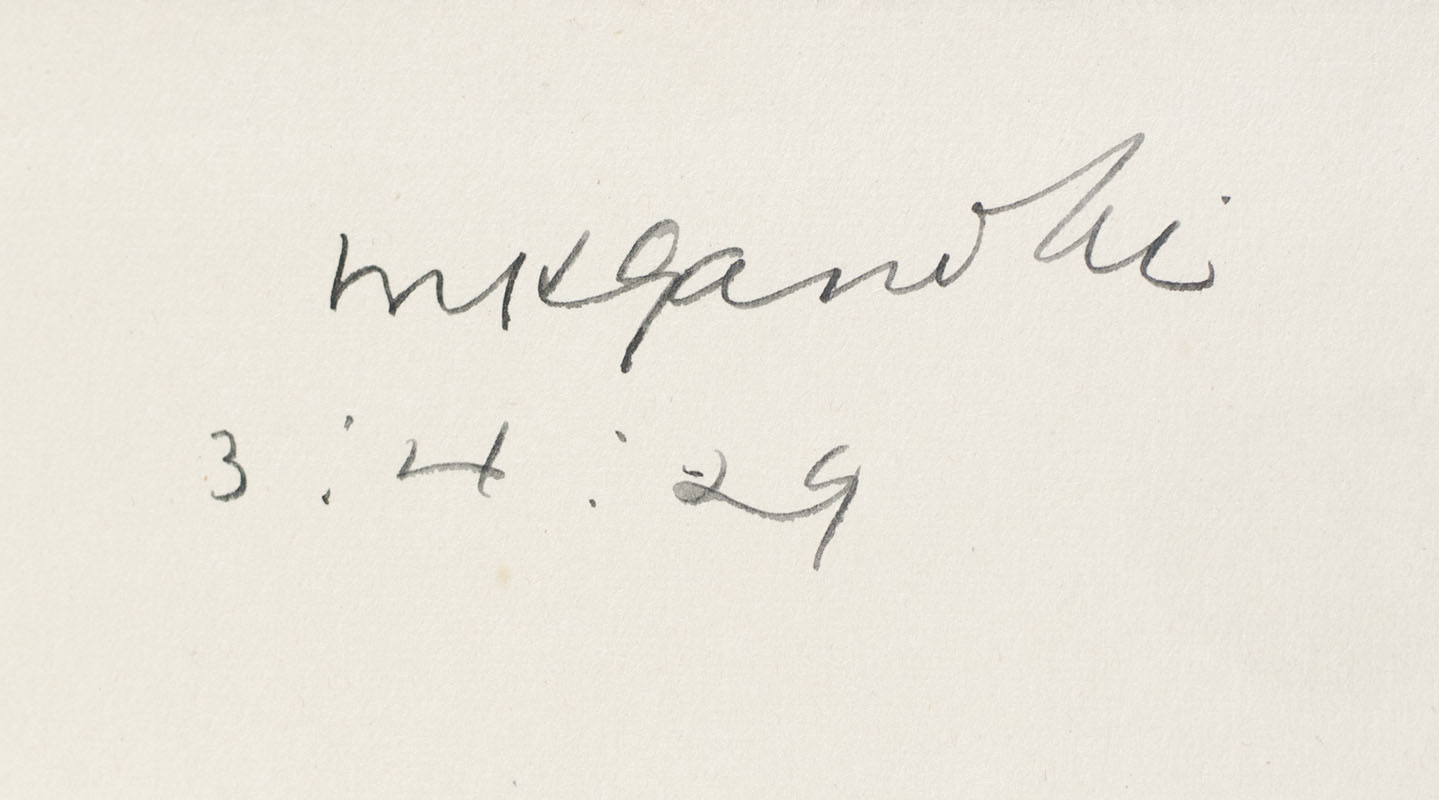 mkgandhi
3 : 4 : 29